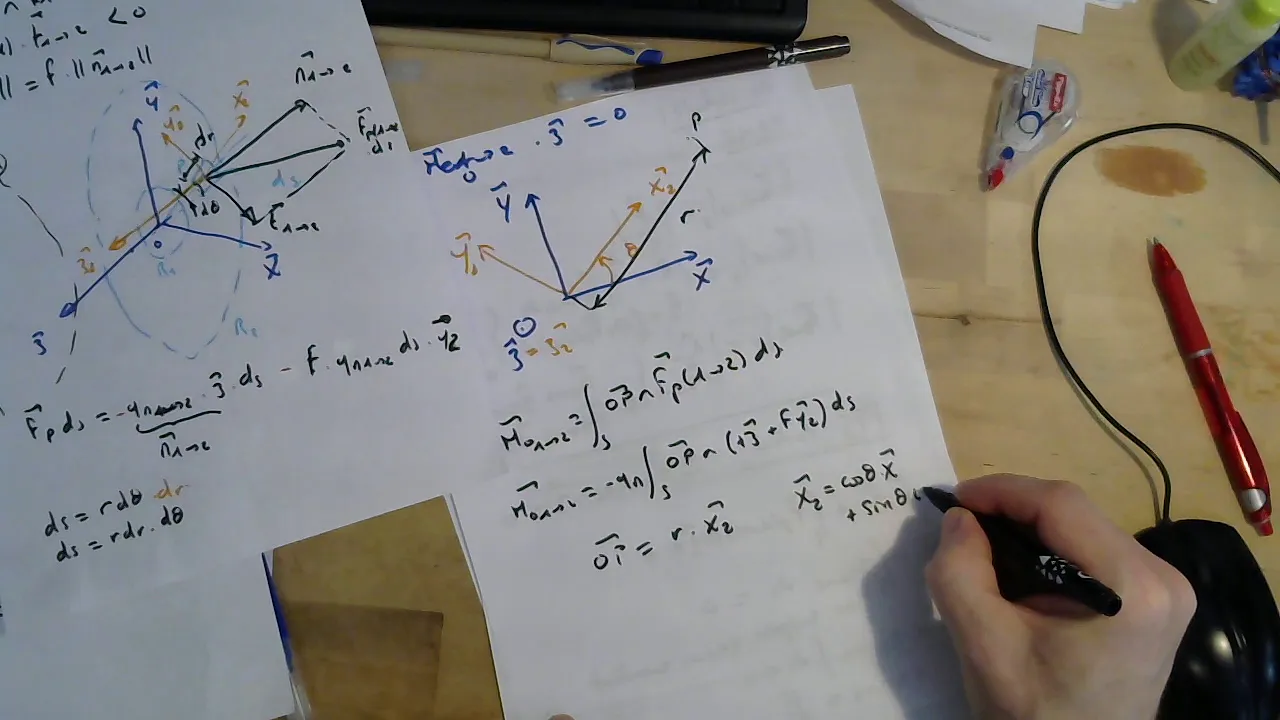 < 0
|| = f. || n⃗1→2 ||
n⃗1→2
y⃗
x⃗
dr
F⃗p(1→2) ds
ds
dθ
t⃗1→2
O
R1
x⃗
R2
z⃗
F⃗p ds = -qn1→2 . z⃗ . ds - f. qn1→2 ds . y⃗2
n⃗1→2
ds = r dθ dr
ds = r dr . dθ
M⃗O 1→2 . z⃗ = 0
P
y⃗
x⃗2
r
y⃗2
θ
x⃗
O
z⃗ = z⃗2
M⃗O 1→2 = ∫S OP⃗ ∧ F⃗p (1→2) ds
M⃗O 1→2 = -qn ∫S OP⃗ ∧ (1z⃗ + f y⃗2) ds
OP⃗ = r . x⃗2
x⃗2 = cosθ x⃗
+ sinθ